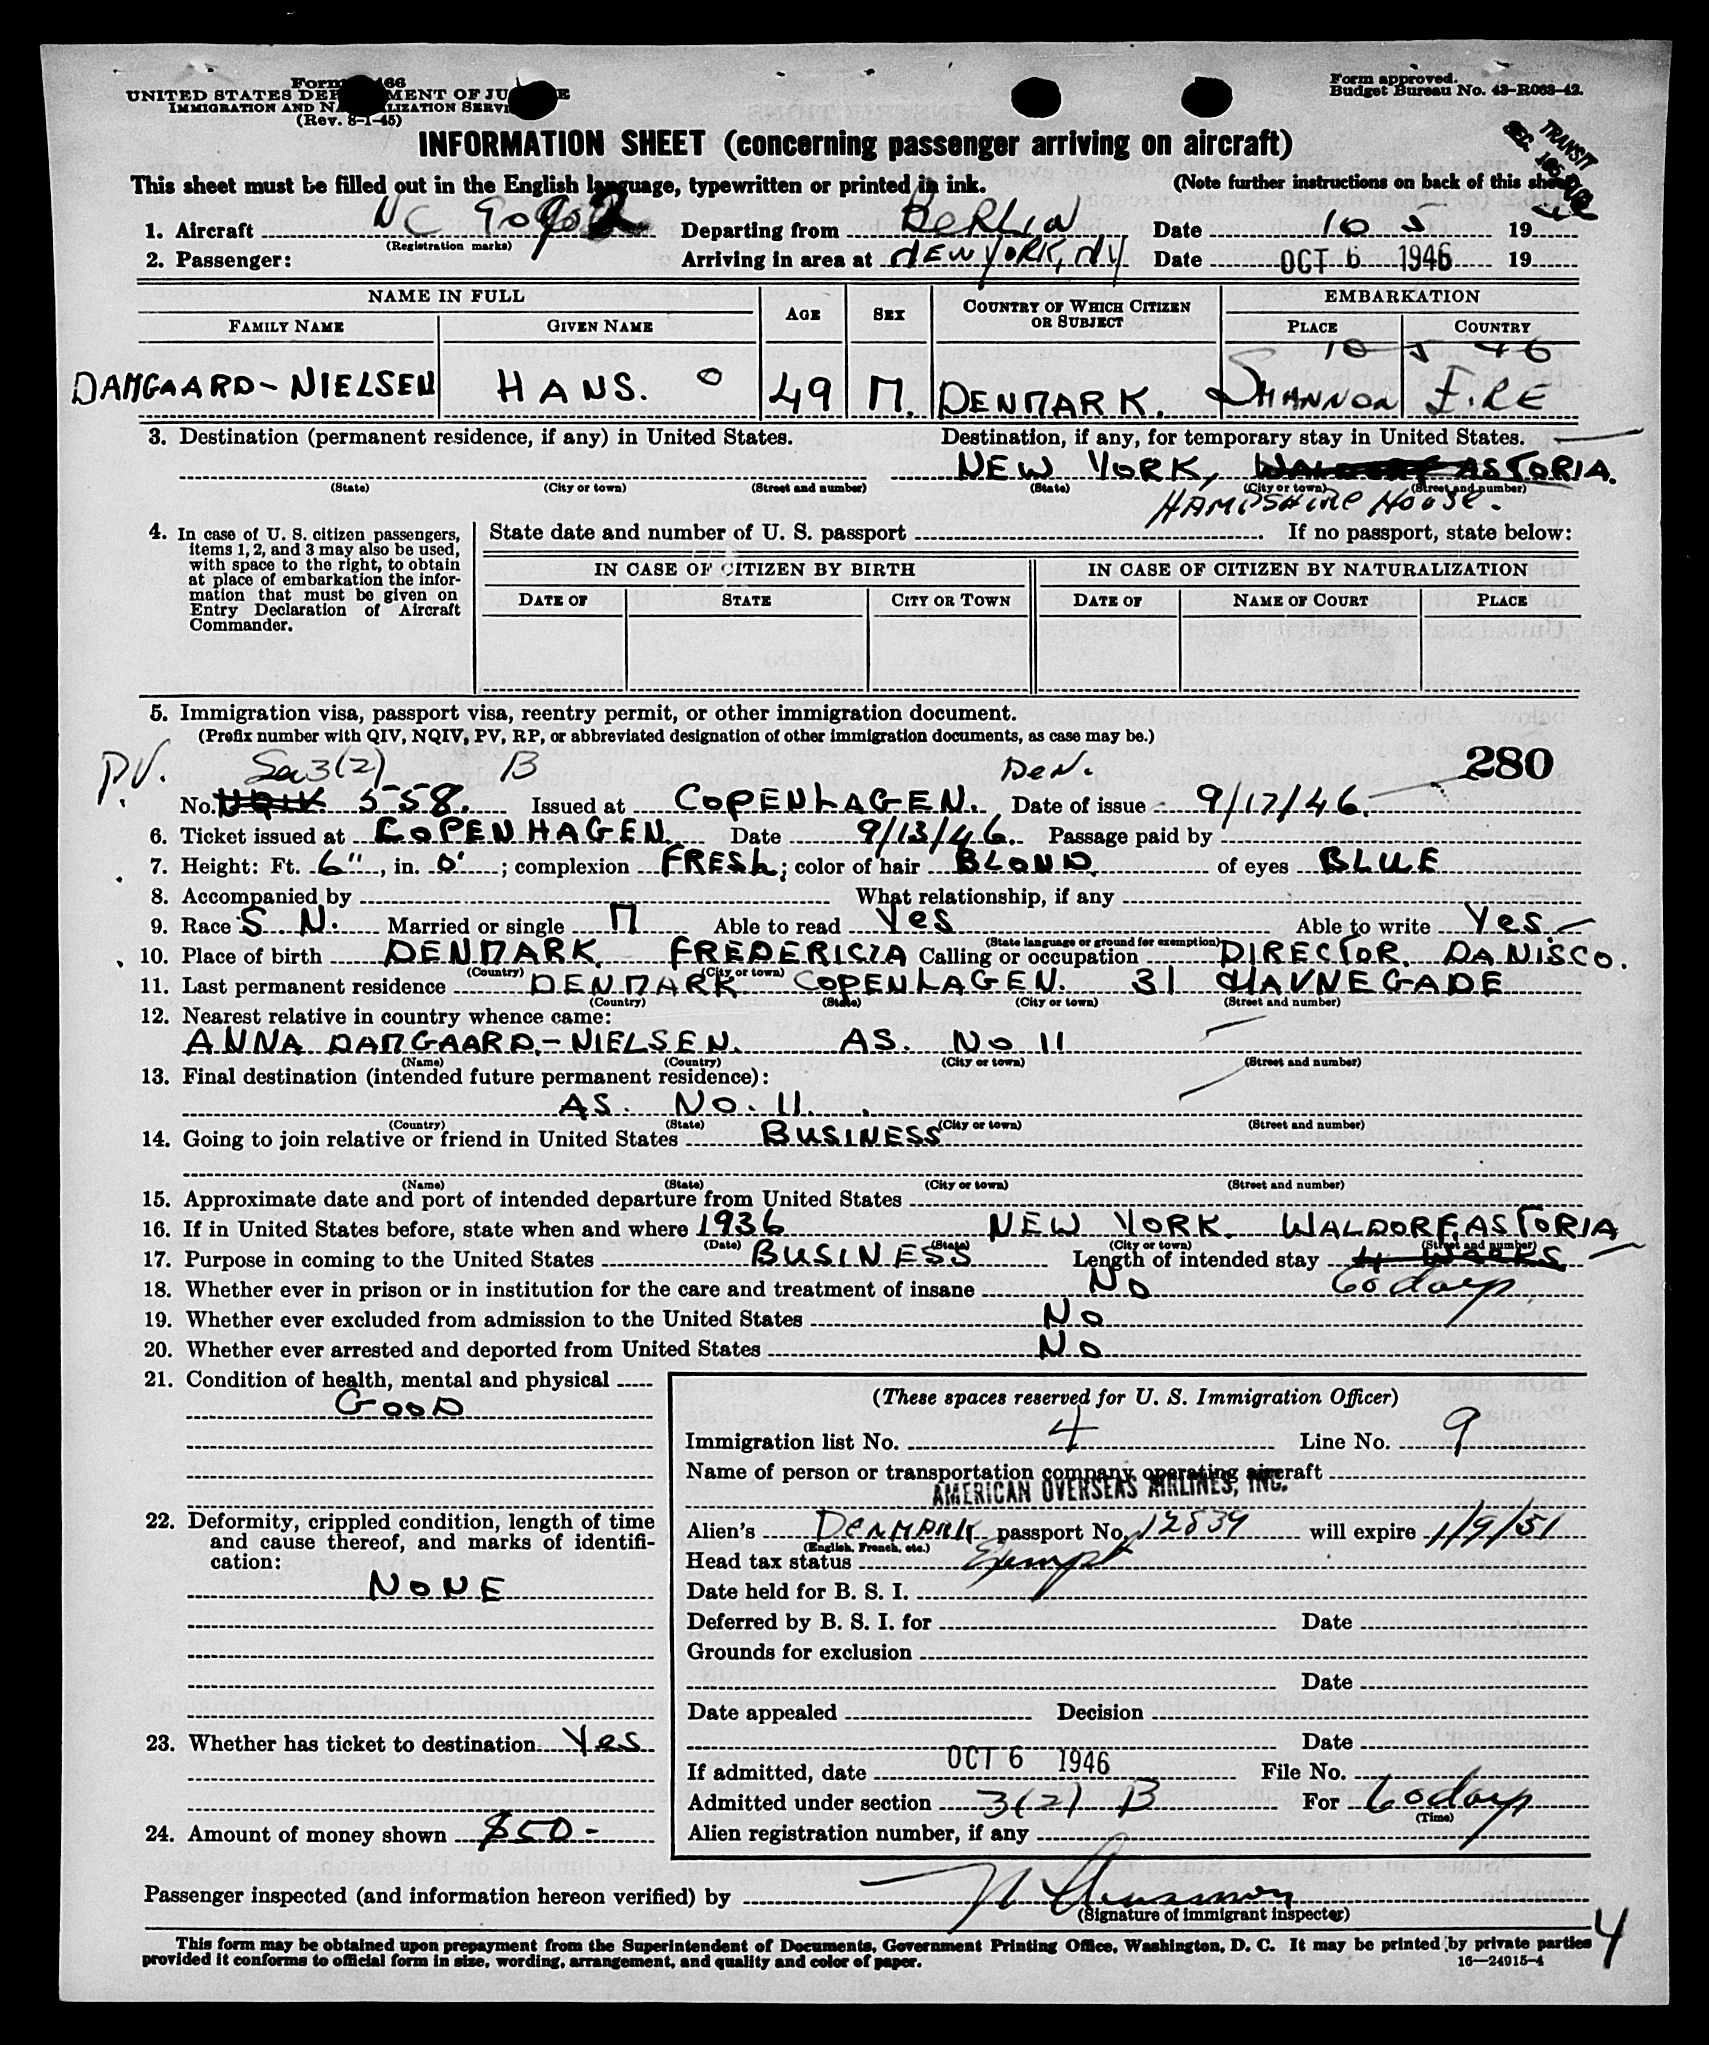 Form 466
UNITED STATES DEPARTMENT OF JUSTICE
IMMIGRATION AND NATURALIZATION SERVICE
(Rev. 8-1-45)
Form approved.
Budget Bureau No. 43-R063-42.
TRANSIT
SEC.
INFORMATION SHEET (concerning passenger arriving on aircraft)
This sheet must be filled out in the English language, typewritten or printed in ink. (Note further instructions on back of this sheet)
1. Aircraft NC 90902 Departing from BERLIN Date 10 5 19 46
(Registration marks)
2. Passenger: Arriving in area at NEW YORK, NY Date OCT 6 1946 19
NAME IN FULL AGE SEX COUNTRY OF WHICH CITIZEN OR SUBJECT EMBARKATION
FAMILY NAME GIVEN NAME PLACE COUNTRY
10 5 46
DAMGAARD-NIELSEN HANS. O 49 M. DENMARK. SHANNON EIRE
3. Destination (permanent residence, if any) in United States. Destination, if any, for temporary stay in United States.
NEW YORK, WALDORF ASTORIA.
(State) (City or town) (Street and number) (State) (City or town) (Street and number)
HAMPSHIRE HOUSE.
4. In case of U. S. citizen passengers, items 1, 2, and 3 may also be used, with space to the right, to obtain at place of embarkation the information that must be given on Entry Declaration of Aircraft Commander.
State date and number of U. S. passport If no passport, state below:
IN CASE OF CITIZEN BY BIRTH IN CASE OF CITIZEN BY NATURALIZATION
DATE OF STATE CITY OR TOWN DATE OF NAME OF COURT PLACE
5. Immigration visa, passport visa, reentry permit, or other immigration document.
(Prefix number with QIV, NQIV, PV, RP, or abbreviated designation of other immigration documents, as case may be.)
P.V. Sec 3(2) B Den. 280
No. 558. Issued at COPENHAGEN. Date of issue 9/17/46.
6. Ticket issued at COPENHAGEN. Date 9/13/46. Passage paid by
7. Height: Ft. 6", in. 0'; complexion FRESH; color of hair BLOND. of eyes BLUE
8. Accompanied by What relationship, if any
9. Race S. N. Married or single M Able to read Yes Able to write Yes.
(State language or ground for exemption)
10. Place of birth DENMARK. FREDERICIA Calling or occupation DIRECTOR. DANISCO.
(Country) (City or town)
11. Last permanent residence DENMARK COPENHAGEN. 31 HAVNEGADE
(Country) (State) (City or town) (Street and number)
12. Nearest relative in country whence came:
ANNA DAMGAARD.-NIELSEN. AS. No 11
(Name) (Country) (City or town) (Street and number)
13. Final destination (intended future permanent residence):
AS. NO. 11.
(Country) (State) (City or town) (Street and number)
14. Going to join relative or friend in United States BUSINESS
(Name) (State) (City or town) (Street and number)
15. Approximate date and port of intended departure from United States
16. If in United States before, state when and where 1936 NEW YORK. WALDORF.ASTORIA
(Date) (State) (City or town) (Street and number)
17. Purpose in coming to the United States BUSINESS Length of intended stay 4 WEEKS
60 days
18. Whether ever in prison or in institution for the care and treatment of insane No
19. Whether ever excluded from admission to the United States No
20. Whether ever arrested and deported from United States No
21. Condition of health, mental and physical
GOOD
22. Deformity, crippled condition, length of time and cause thereof, and marks of identification:
NONE
23. Whether has ticket to destination Yes
24. Amount of money shown $50-
(These spaces reserved for U. S. Immigration Officer)
Immigration list No. 4 Line No. 9
Name of person or transportation company operating aircraft
AMERICAN OVERSEAS AIRLINES, INC.
Alien's DENMARK passport No. 12839 will expire 1/9/51
(English, French, etc.)
Head tax status Exempt
Date held for B. S. I.
Deferred by B. S. I. for Date
Grounds for exclusion
Date
Date appealed Decision
Date
If admitted, date OCT 6 1946 File No.
Admitted under section 3(2) B For 60 days
(Time)
Alien registration number, if any
Passenger inspected (and information hereon verified) by
(Signature of immigrant inspector)
This form may be obtained upon prepayment from the Superintendent of Documents, Government Printing Office, Washington, D. C. It may be printed by private parties
provided it conforms to official form in size, wording, arrangement, and quality and color of paper.
16—24915-4
4